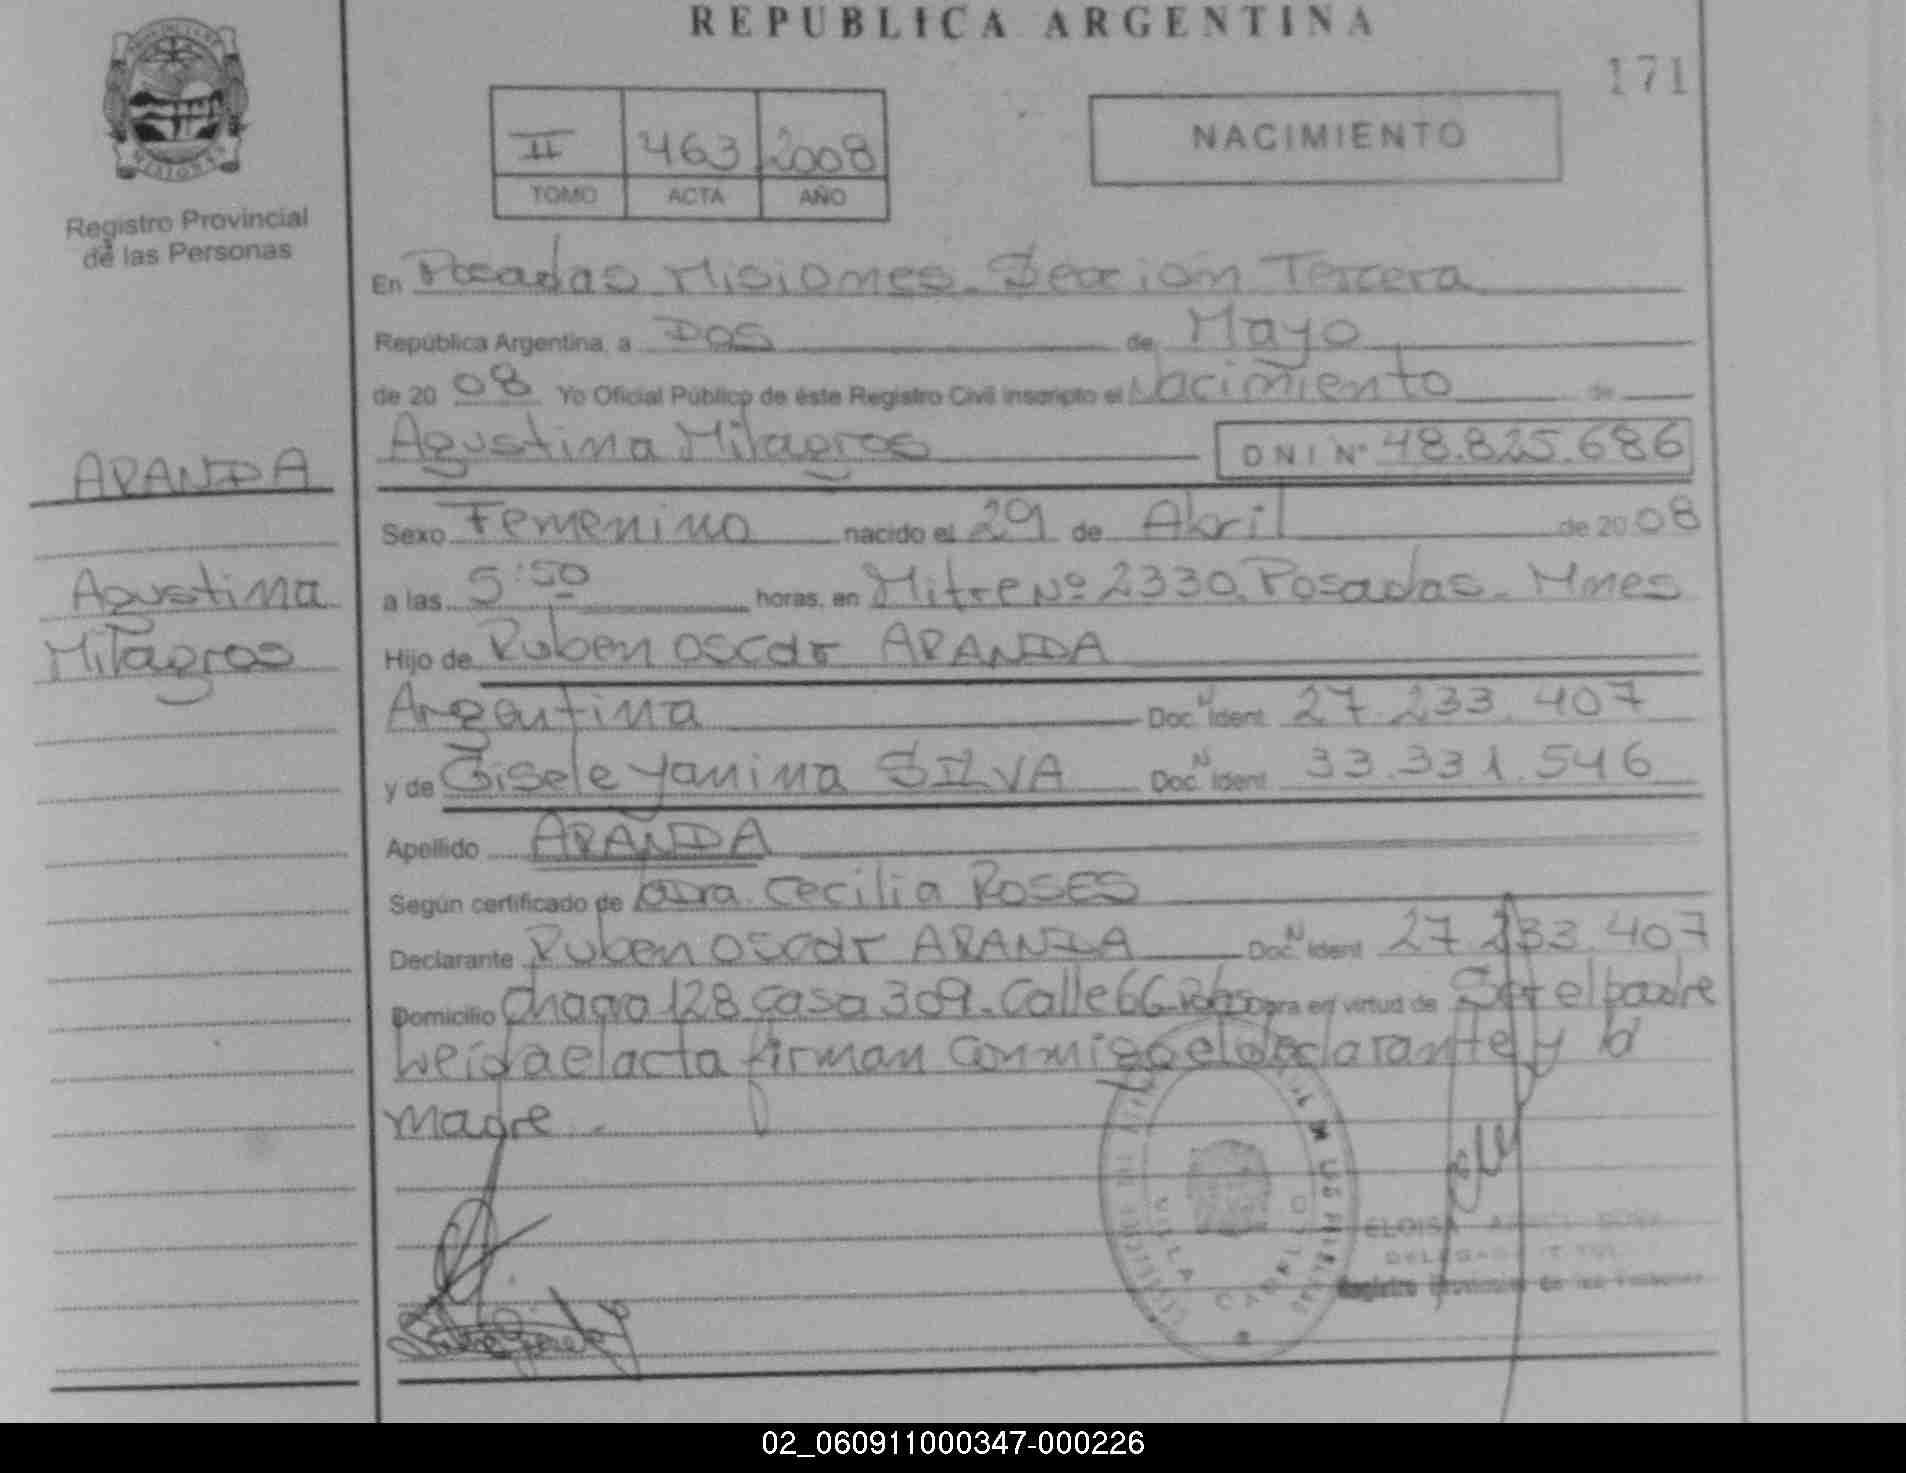 REPUBLICA ARGENTINA
171
II 463 2008
TOMO ACTA AÑO
NACIMIENTO
PROVINCIA DE
MISIONES
Registro Provincial
de las Personas
En Posadas Misiones. Sección Tercera
República Argentina, a Dos de Mayo
de 20 08 Yo Oficial Público de éste Registro Civil inscripto el Nacimiento de
Agustina Milagros DNI Nº 48.825.686
ARANDA
Agustina
Milagros
Sexo Femenino nacido el 29 de Abril de 20 08
a las 5:50 horas, en Mitre Nº 2330 Posadas - Mnes
Hijo de Ruben Oscar ARANDA
Argentina Doc N Ident 27.233.407
y de Gisele Yanina SILVA Doc N Ident 33.331.546
Apellido ARANDA
Según certificado de Dra. Cecilia ROSES
Declarante Ruben Oscar ARANDA Doc N Ident 27.233.407
Domicilio Chacra 128 Casa 309 - Calle 66 Obra en virtud de Ser el padre
Leída el acta firman conmigo el declarante y la
madre.
VILLA CABELLO
ELOISA
Registro Provincial de las Personas
02_060911000347-000226